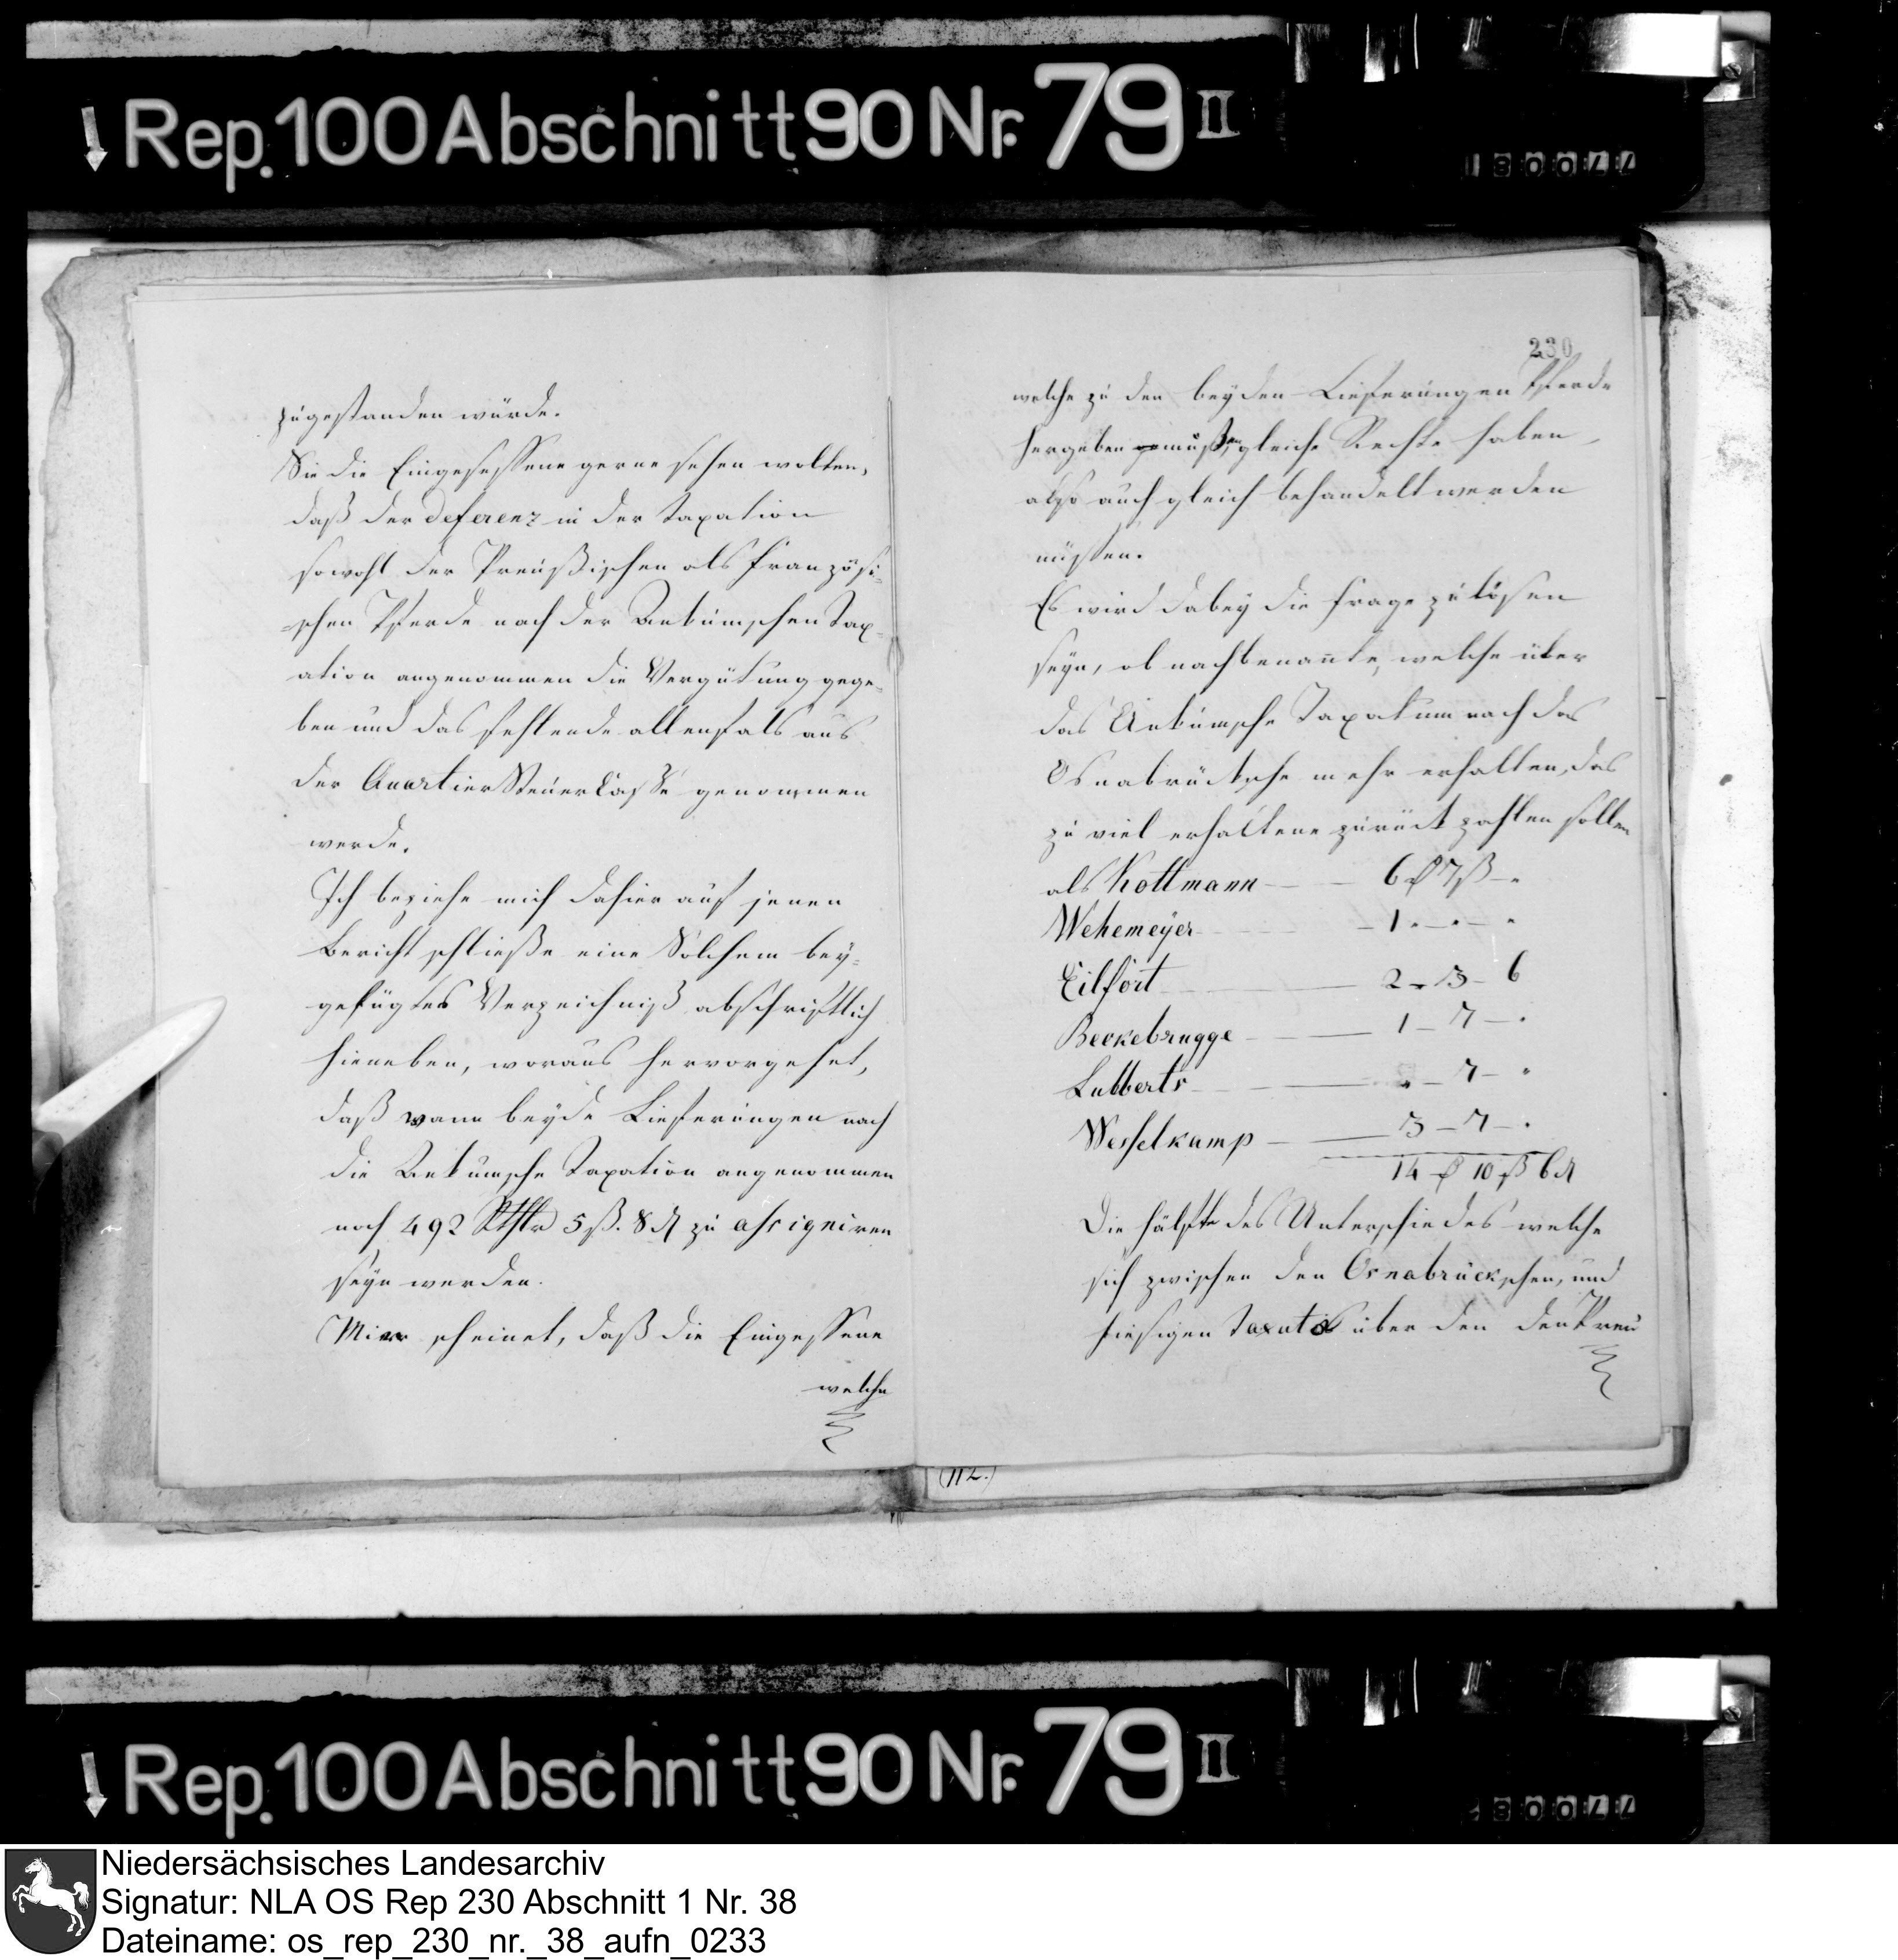 Rep. 100 Abschnitt 90 Nr. 79 II
zugestanden würde.
Sie die Eingesessene gerne sehen wollten,
daß der deferenz in der Taxation
sowohl der Preußischen als Französi-
-schen Pferde nach der Ankumschen Tax-
ation angenommen die Vergütung gege-
ben und das fehlende allenfals aus
der Quartier Steuer Casse genommen
werde.
Ich beziehe mich dahier auf jenen
Bericht schließe eine Solchem bey-
gefügtes Verzeichniß abschriftlich
hieneben, woraus hervorgehet,
daß wann beyde Lieferungen nach
die Ankumsche Taxation angenommen
noch 492 Rthlr 5 ß. 8 d zu assigniren
seyn werden.
Mir scheinet, daß die Eingessene
welche
230
welche zu den beyden Lieferungen Pferde
hergeben mußten, gleiche Rechte haben,
also auch gleich behandelt werden
müssen.
Es wird dabey die Frage zu lösen
seyn, ob nachbenannte, welche über
das Ankumsche Taxatum nach das
Osnabrücksche mehr erhalten, das
zu viel erhaltene zurück zahlen sollen
als Kottmann — 6 ₰ 7 ß - "
Wehemeyer — 1 " - " - "
Eilfort — 2 - 3 - 6
Beekebrugge — 1 - 7 - "
Lubberts — " - 7 - "
Wesselkamp — 3 - 7 - "
14 ₰ 10 ß 6 d
Die hälfte des Unterschiedes welche
sich zwischen den Osnabrückschen, und
hiesigen Taxato über den den Preu
(112.)
Rep. 100 Abschnitt 90 Nr. 79 II
Niedersächsisches Landesarchiv
Signatur: NLA OS Rep 230 Abschnitt 1 Nr. 38
Dateiname: os_rep_230_nr._38_aufn_0233